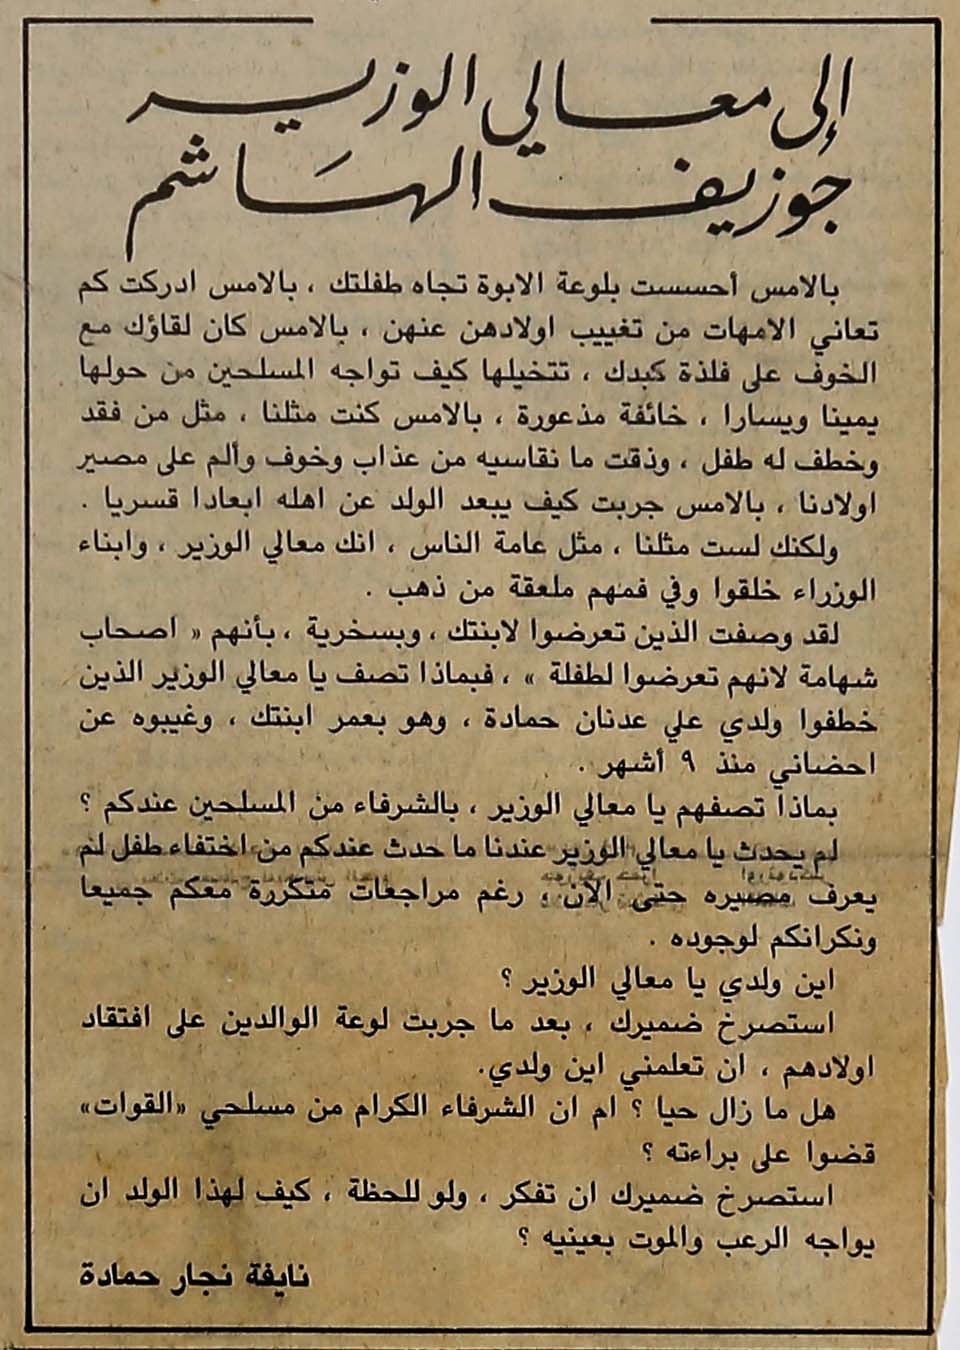 إلى معالي الوزير
جوزيف الهاشم
بالامس أحسست بلوعة الابوة تجاه طفلتك ، بالامس ادركت كم
تعاني الامهات من تغييب اولادهن عنهن ، بالامس كان لقاؤك مع
الخوف على فلذة كبدك ، تتخيلها كيف تواجه المسلحين من حولها
يمينا ويسارا ، خائفة مذعورة ، بالامس كنت مثلنا ، مثل من فقد
وخطف له طفل ، وذقت ما نقاسيه من عذاب وخوف وألم على مصير
اولادنا ، بالامس جربت كيف يبعد الولد عن اهله ابعادا قسريا .
ولكنك لست مثلنا ، مثل عامة الناس ، انك معالي الوزير ، وابناء
الوزراء خلقوا وفي فمهم ملعقة من ذهب .
لقد وصفت الذين تعرضوا لابنتك ، وبسخرية ، بأنهم « اصحاب
شهامة لانهم تعرضوا لطفلة » ، فبماذا تصف يا معالي الوزير الذين
خطفوا ولدي علي عدنان حمادة ، وهو بعمر ابنتك ، وغيبوه عن
احضاني منذ ٩ أشهر .
بماذا تصفهم يا معالي الوزير ، بالشرفاء من المسلحين عندكم ؟
لم يحدث يا معالي الوزير عندنا ما حدث عندكم من اختفاء طفل لم
يعرف مصيره حتى الآن ، رغم مراجعات متكررة معكم جميعا
ونكرانكم لوجوده .
اين ولدي يا معالي الوزير ؟
استصرخ ضميرك ، بعد ما جربت لوعة الوالدين على افتقاد
اولادهم ، ان تعلمني اين ولدي.
هل ما زال حيا ؟ ام ان الشرفاء الكرام من مسلحي «القوات»
قضوا على براءته ؟
استصرخ ضميرك ان تفكر ، ولو للحظة ، كيف لهذا الولد ان
يواجه الرعب والموت بعينيه ؟
نايفة نجار حمادة